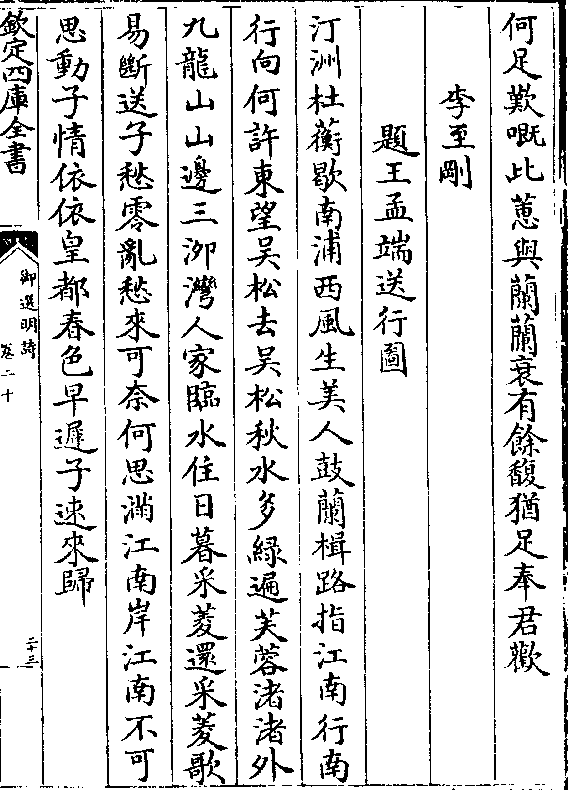 何足歎嘅比蕙與蘭蘭衰有餘馥猶足奉君歡
李至剛
題王孟端送行圖
汀洲杜蘅歇南浦西風生美人鼓蘭楫路指江南行南
行向何許東望吳松去吳松秋水多綠遍芙蓉渚渚外
九龍山山邊三泖灣人家臨水住日暮采菱還采菱歌
易斷送子愁零亂愁來可奈何思滿江南岸江南不可
思動子情依依皇都春色早遲子速來歸
欽定四庫全書
御選明詩
卷二十
二十三